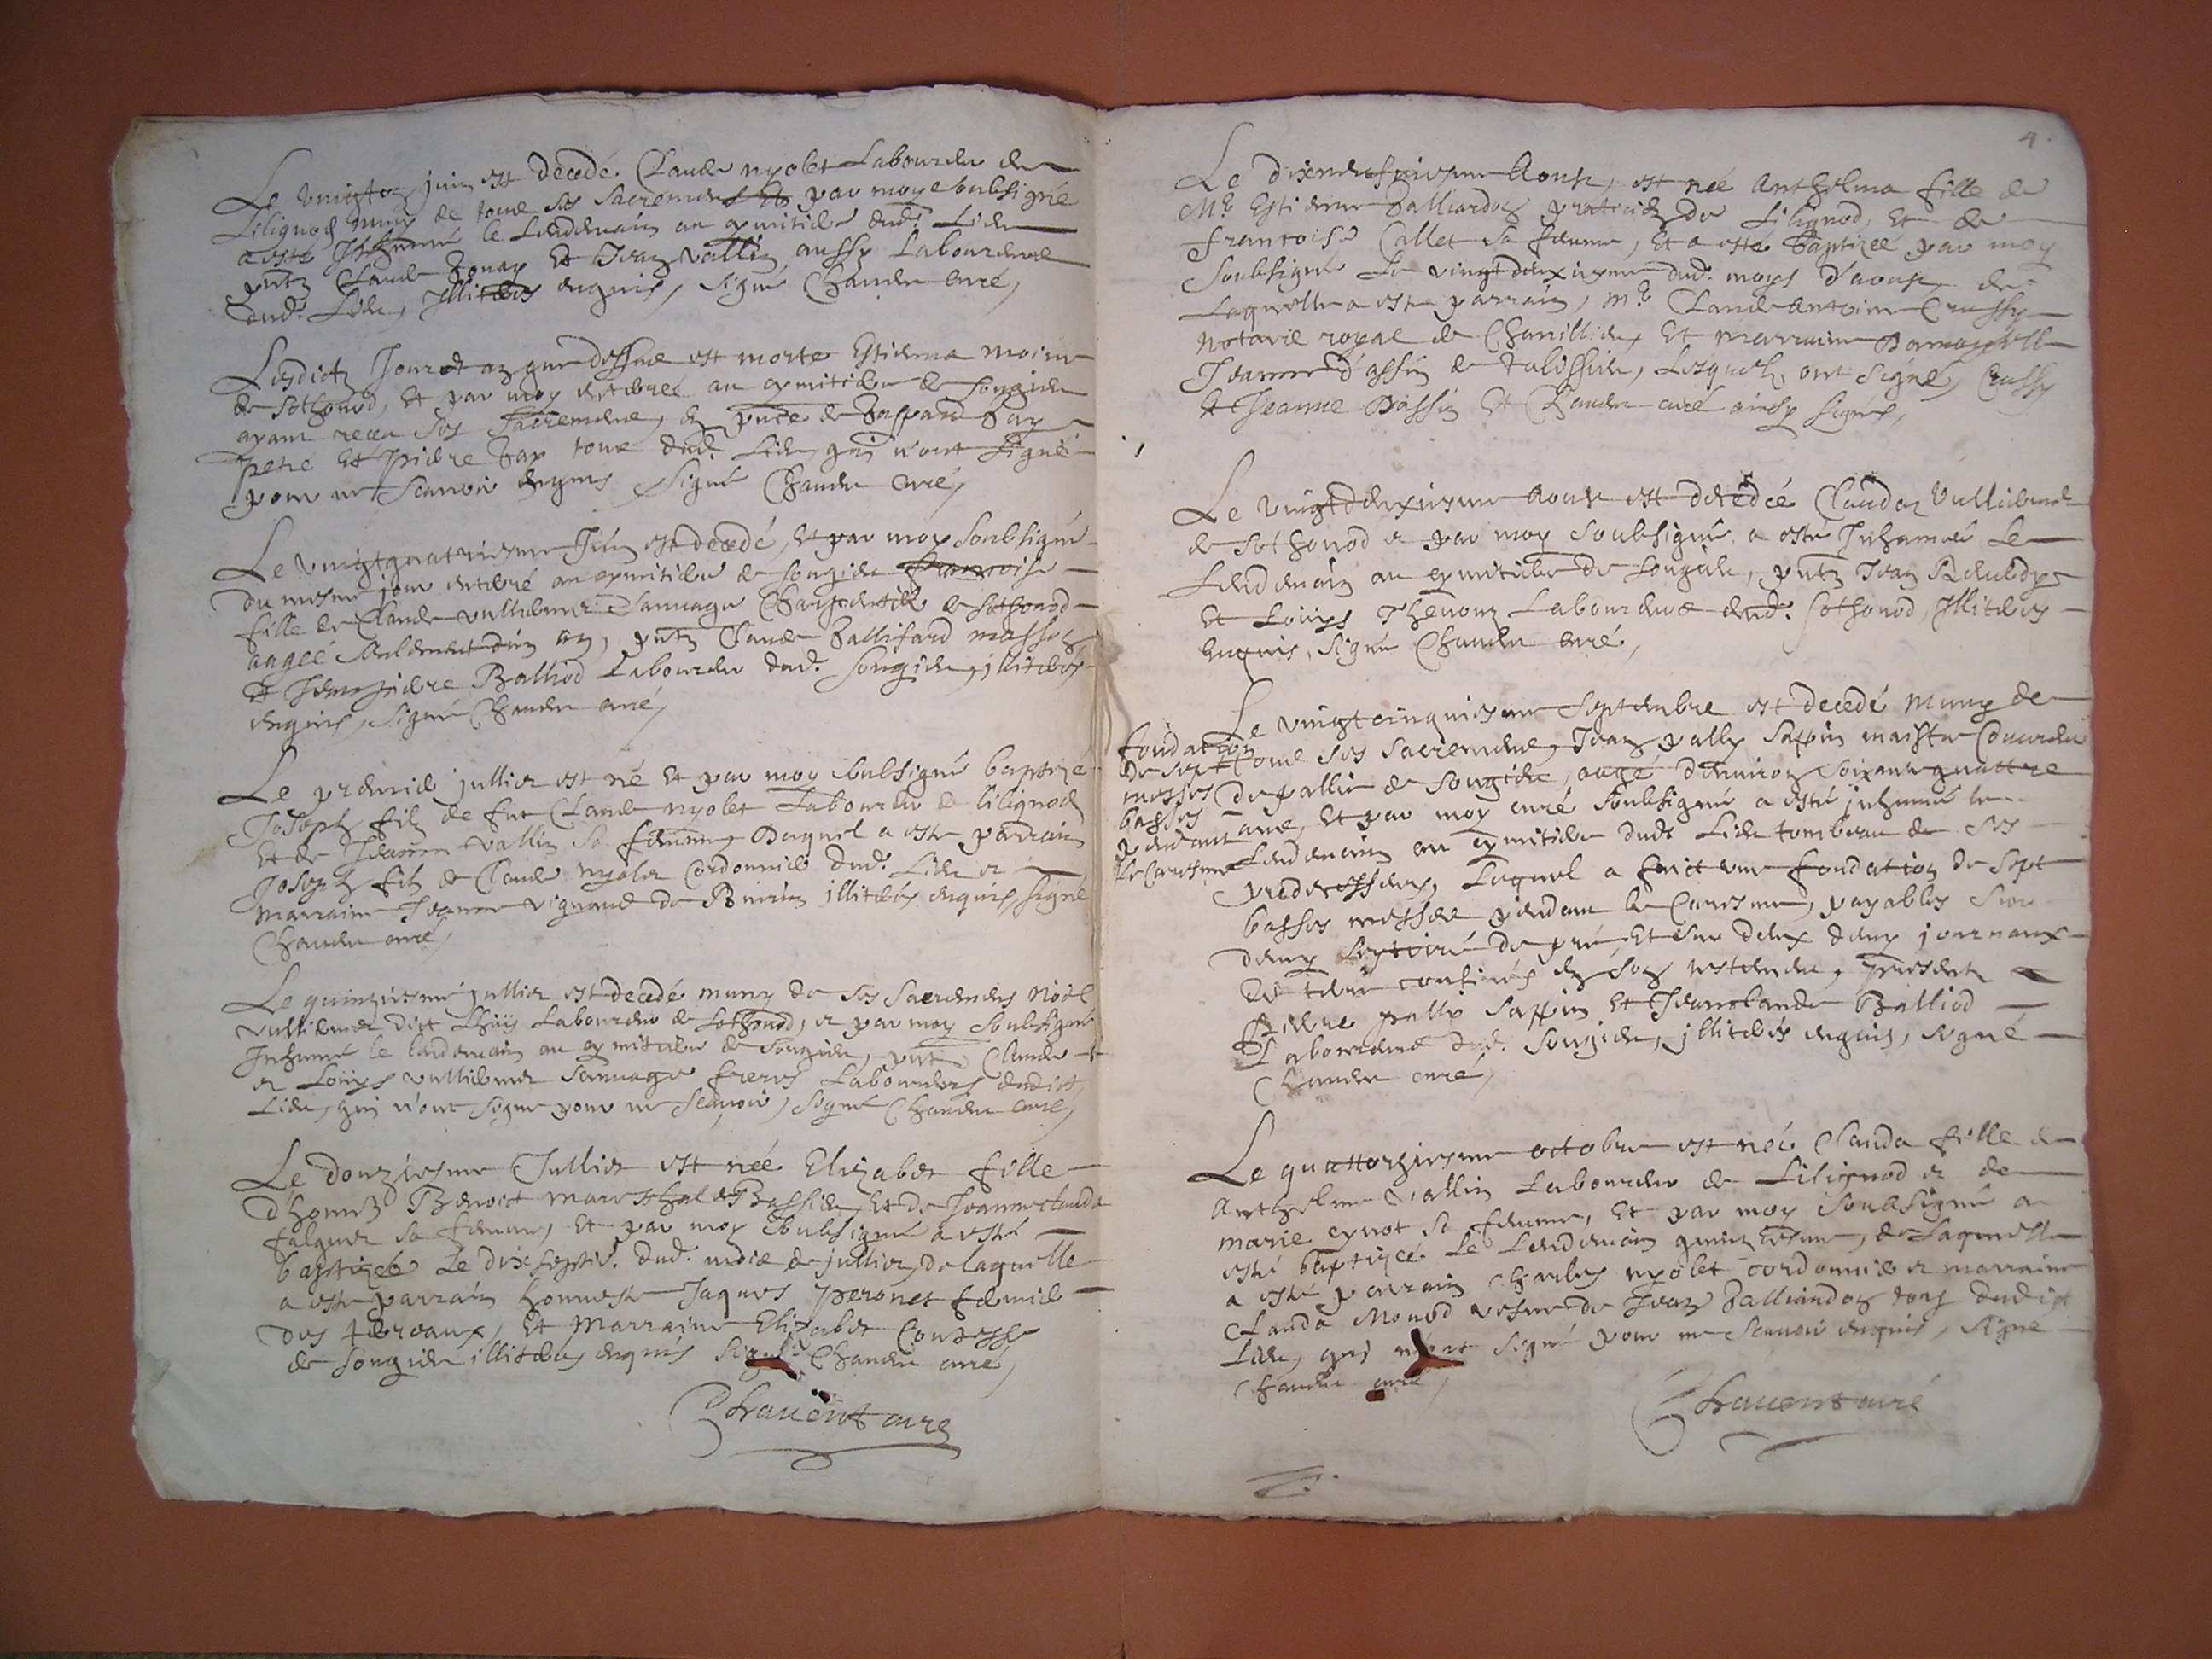 Le vingt juin est decedé Claude nyolet Laboureur de
Lilignod muny de tous ses sacremens Et par moy soubsigné
a esté Inhumé le Lendemain au cymitiere dud. Lieu
pntz Claude et Jean Vallin aussy Laboureurs
dud. Lieu, Illiteres enquis, signé Chavent curé,
Lesdictz Jour et an que dessus est morte Estienna Moine
de Sothonod, Et par moy enterrée au cymitiere de Songieu
ayant receu ses Sacremens, en pnce de Gaspard Gay
petre Et pierre Gay tous dud. Lieu, qui n'ont signé
pour ne scavoir enquis signé Chavent curé,
Le vingtquatriesme Juin est decedé, Et par moy soubsigné
du mesme jour enterré au cymitiere de Songieu francoise
fille de Claude vulliemet Sauvage Charpentier de Sothonod
aagée seulement d'un an, pntz Claude masson
Et Jean pierre Balliod Laboureur dud. Songieu, illiteres
enquis, signé Chavent curé,
Le premier juillet est né Et par moy soubsigné baptizé
Joseph filz de fut Claude nyolet Laboureur de lilignod
Et de Jeanne Vallin sa femme, Duquel a esté parrain
Joseph filz de Claude nyolet Cordonnier dud. Lieu et
marraine Jeanne vignand de illiteres enquis, signé
Chavent curé,
Le quinziesme juillet est decedé muny de ses sacremens Noël
vulliemet dict Laboureur de Sothonod, et par moy soubsigné
Inhumé le lendemain au cymitiere de Songieu, pntz Claude
et Loüys vulliemet Sauvage freres Laboureurs dudict
Lieu, qui n'ont signé pour ne scavoir, signé Chavent curé,
Le douziesme Juillet est née Elizabet fille
d'honnes Benoict mareschal de Bassieu, Et de Jeanne Clauda
falquet sa femme, Et par moy soubsigné a esté
baptizée Le dix septie. dud. mois de juillet, De laquelle
a esté parrain honneste Jaques peronet fermier
des terreaux, Et Marraine Elizabet Contesse
de Songieu illiteres enquis signé Chavent curé,
Chavent curé
4.
Le dixneufviesme Aoust, est née Anthelma fille de
Me Estienne Galliardon praticien de Lilignod, Et de
francoise Callet sa femme, Et a esté Baptizée par moy
Soubsigné Le vingtdeuxiesme dud. moys d'aoust, de
Laquelle a esté parrain, me Claude Antoine Crussy
Notaire royal de Chanillieu, Et marraine Damoyselle
Jeanne d'assin de Lesquels ont signé, Crussy
Jeanne Dassin Et Chavent curé ainsy signés,
Le vingtdeuxiesme Aoust est decedée Claudaz Vulliemet
de Sothonod et par moy soubsigné a esté Inhumée Le
Lendemain au cymitiere de Songieu, pntz Jean
Et Loüys Thevon Laboureurs dud. Sothonod, Illiteres
Enquis, signé Chavent curé,
fondation
de sept
messes
basses
pendant
le Caresme
Le vingtcinquiesme Septembre est decedé Muny de
tous ses sacremens, Jean pally Sappin maistre Couvreur
de paille de Songieu, aagé d'environ soixante quattre
ans, Et par moy curé soubsigné a esté inhumé le
Lendemain au cymitiere dudt Lieu tombeau de ses
predecesseurs, Lequel a faict une fondation de sept
basses messes pendant le Caresme, payables sur
demy septoirée de pré, Et sur deux demy journaux
de terre confinés en son testament, presentz
Pierre pally Sappin et Jeanclaude Balliod
Laboureurs dud. Songieu, illiteres enquis, signé
Chavent curé,
Le quattorziesme octobre est née Clauda fille de
Anthelme Vallin Laboureur de Lilignod et de
marie cynot sa femme, Et par moy soubsigné a
esté baptizée Le Lendemain quinziesme, de Laquelle
a esté parrain Charles nyolet cordonnier et marraine
Clauda Monod vefve de Jean Galliardon tous dudict
Lieu, qui n'ont signé pour ne scavoir enquis, signé
Chavent curé,
Chavent curé